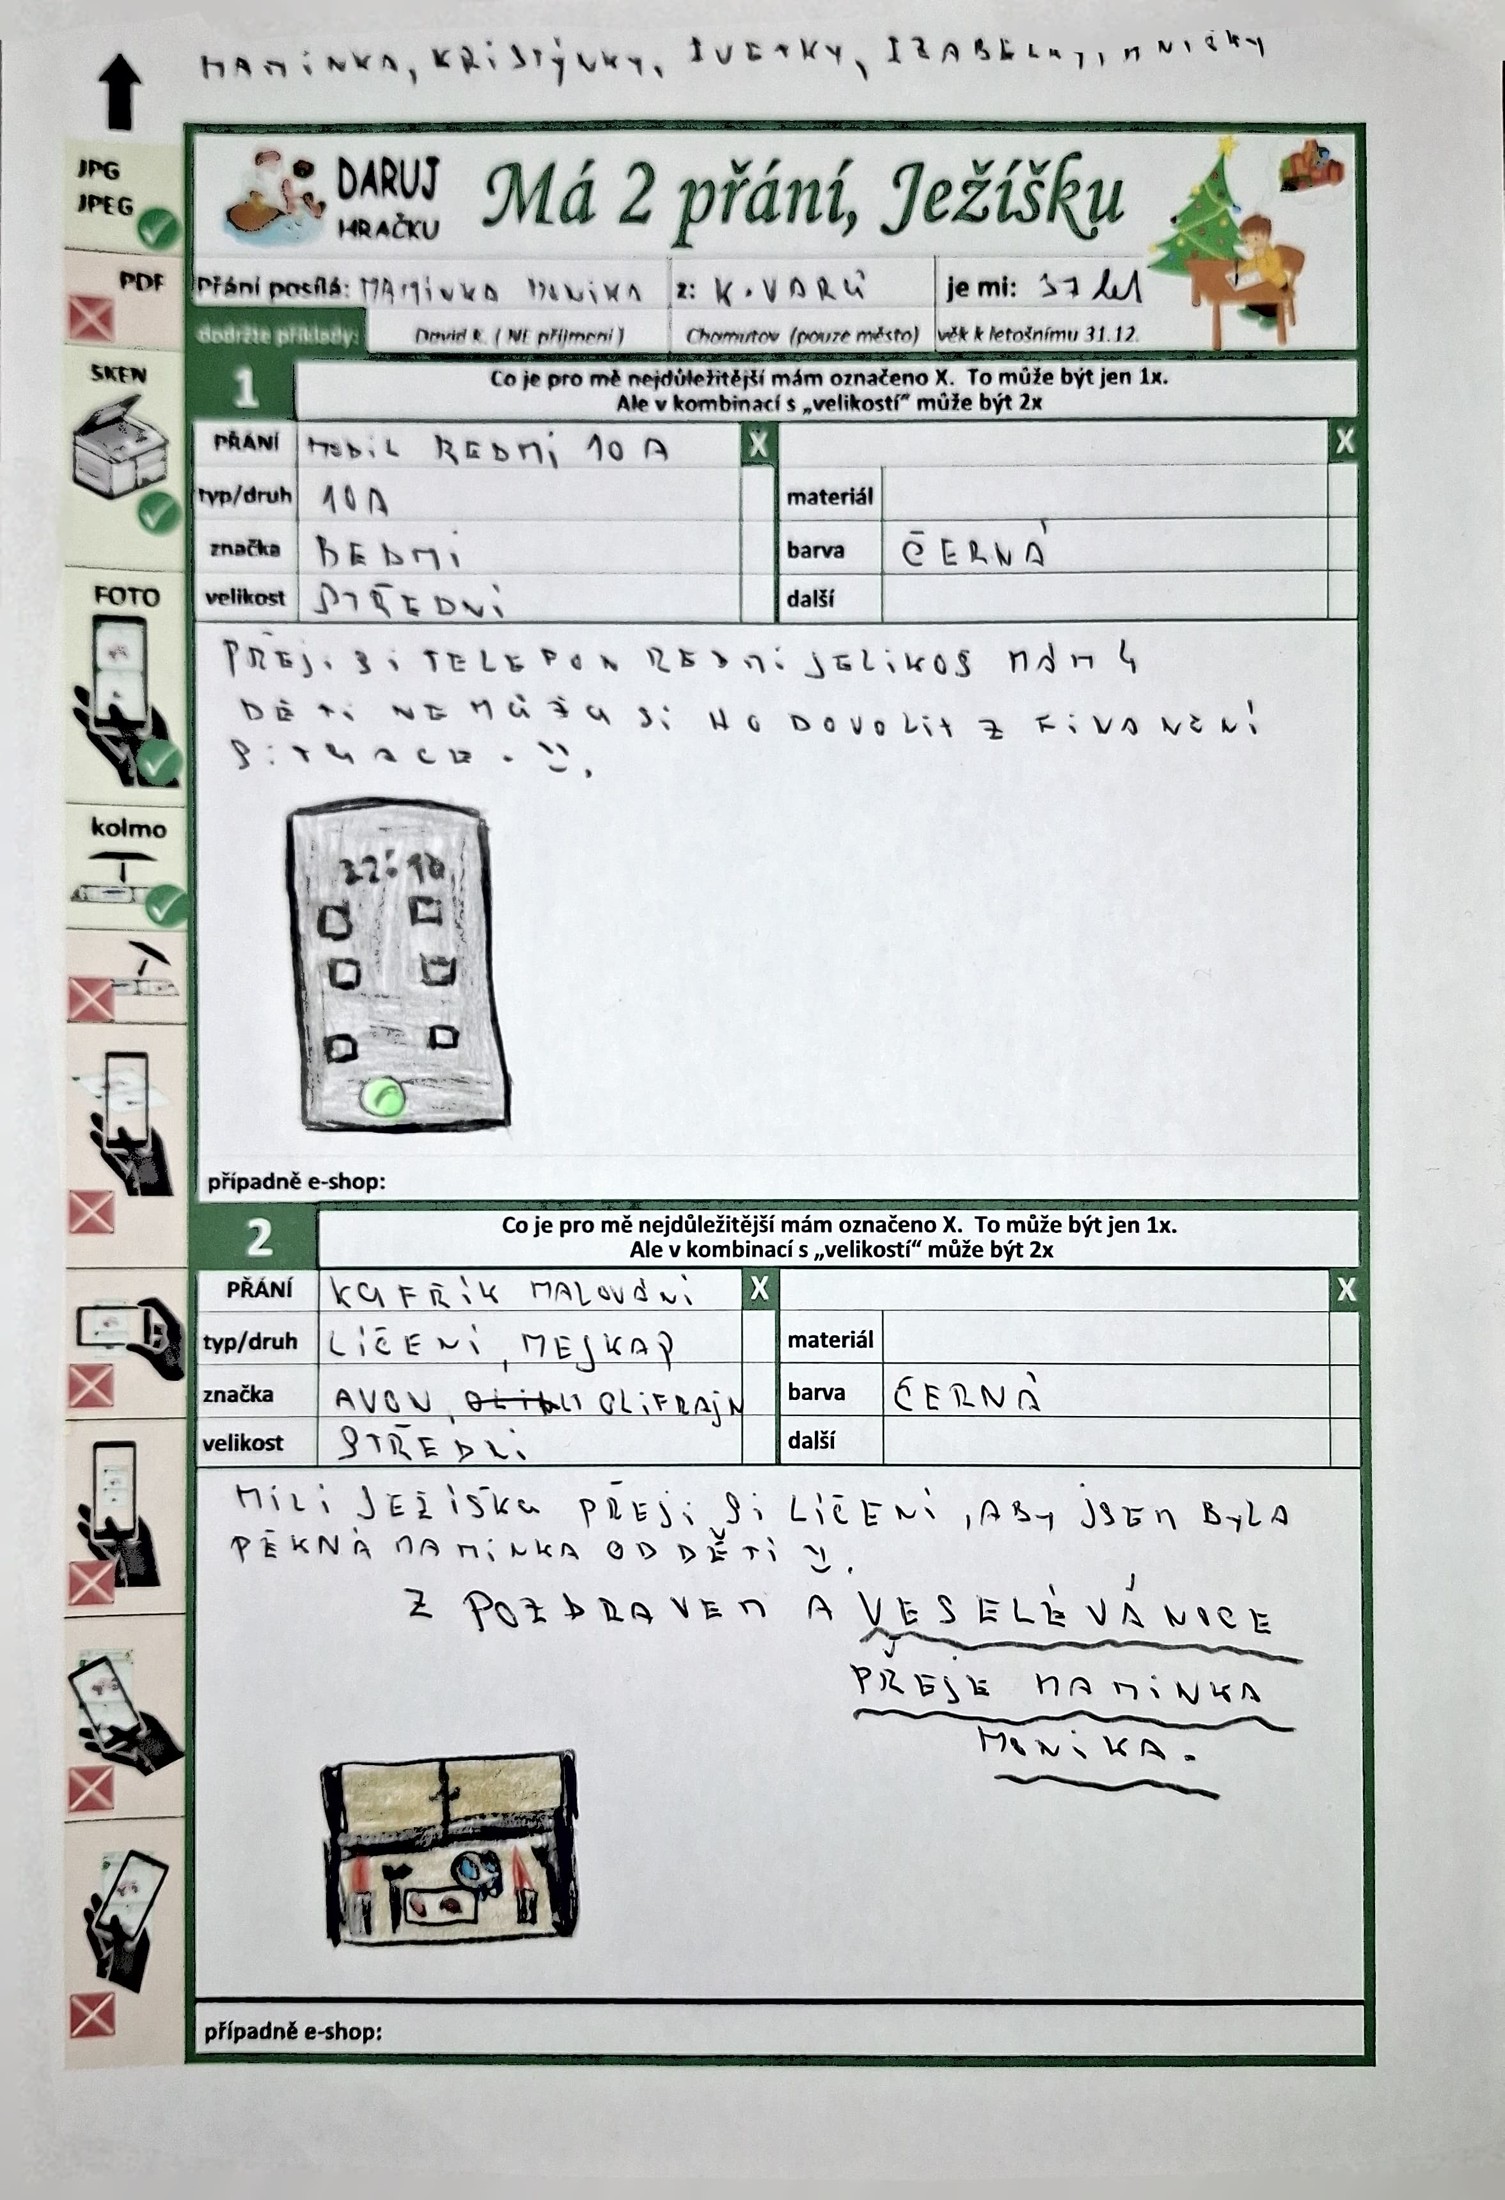 MAMINKA, KRISTÝNKY, IVETKY, IZABELKY,
JPG
JPEG
PDF
SKEN
FOTO
kolmo
DARUJ
HRAČKU
Má 2 přání, Ježíšku
Přání posílá: MAMINKA MONIKA z: K. VARŮ je mi: 37 let
dodržte příklady: David K. ( NE příjmení ) Chomutov (pouze město) věk k letošnímu 31.12.
1
Co je pro mě nejdůležitější mám označeno X. To může být jen 1x.
Ale v kombinací s „velikostí“ může být 2x
PŘÁNÍ MOBIL REDMI 10 A X X
typ/druh 10A materiál
značka REDMI barva ČERNÁ
velikost STŘEDNÍ další
PŘEJI SI TELEFON REDMI JELIKOS MÁM 4
DĚTI NEMŮŽU SI HO DOVOLIT Z FINANČNÍ
SITUACE. :).
22:10
případně e-shop:
2
Co je pro mě nejdůležitější mám označeno X. To může být jen 1x.
Ale v kombinací s „velikostí“ může být 2x
PŘÁNÍ KUFŘÍK MALOVÁNÍ X X
typ/druh LÍČENÍ, MEJKAP materiál
značka AVON, OLIFRAJN barva ČERNÁ
velikost STŘEDNÍ další
MILI JEŽÍŠKU PŘEJI SI LÍČENÍ, ABY JSEM BYLA
PĚKNÁ MAMINKA OD DĚTÍ :).
Z POZDRAVEM A VESELÉ VÁNOCE
PŘEJE MAMINKA
MONIKA.
případně e-shop: